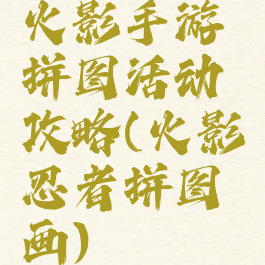 火影手游
拼图活动
攻略(火影
忍者拼图
画)